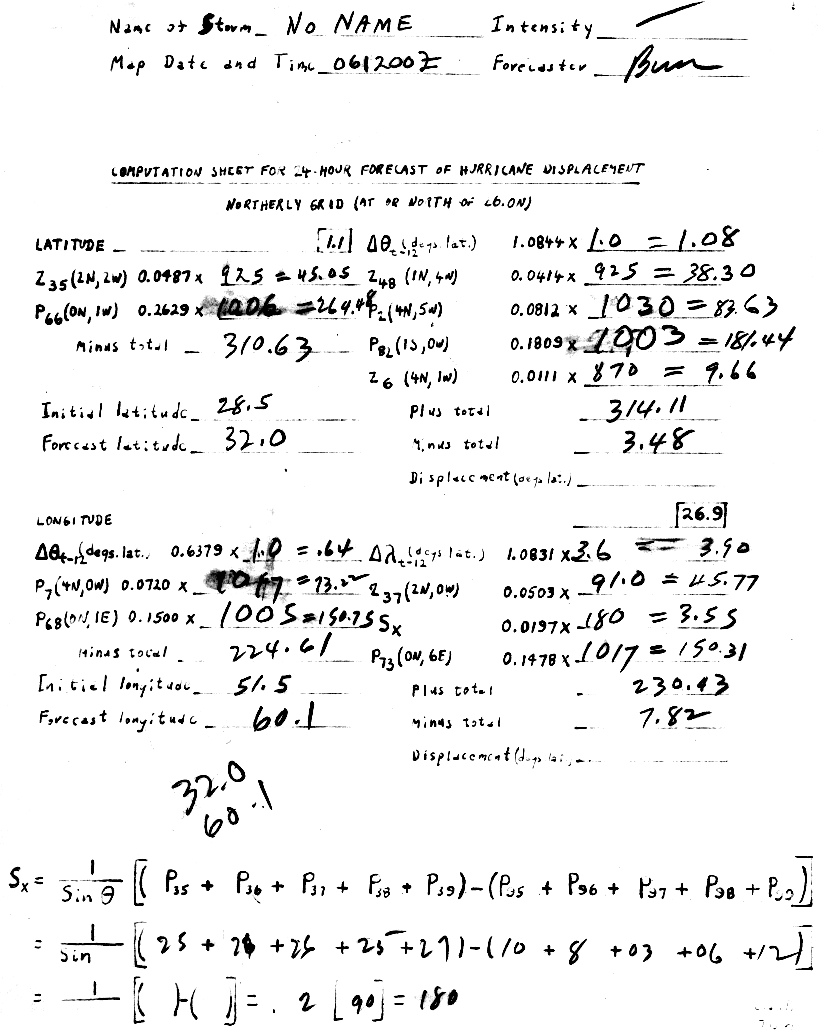 Name of Storm_ NO NAME Intensity
Map Date and Time 061200Z Forecaster
COMPUTATION SHEET FOR 24-HOUR FORECAST OF HURRICANE DISPLACEMENT
NORTHERLY GRID (AT OR NORTH OF 26.0N)
LATITUDE _ [1.1] Δθt-12 (degs. lat.) 1.0844 x 1.0 = 1.08
Z35(2N, 2W) 0.0487 x 925 = 45.05 Z48 (1N, 4W) 0.0414 x 925 = 38.30
P66(0N, 1W) 0.2629 x 1006 = 264.48 P2(4N, 5W) 0.0812 x 1030 = 83.63
Minus total _ 310.63 P82(1S, 0W) 0.1809 x 1003 = 181.44
Z6 (4N, 1W) 0.0111 x 870 = 9.66
Initial latitude_ 28.5 Plus total 314.11
Forecast latitude_ 32.0 Minus total 3.48
Displacement (degs lat.)
LONGITUDE [26.9]
Δθt-12 (degs. lat.) 0.6379 x 1.0 = .64 Δλt-12 (degs lat.) 1.0831 x 3.6 = 3.90
P7(4N, 0W) 0.0720 x 1017 = 73.22 Z37(2N, 0W) 0.0503 x 91.0 = 45.77
P68(0N, 1E) 0.1500 x 1005 = 150.75 Sx 0.0197 x 180 = 3.55
Minus total _ 224.61 P73(0N, 6E) 0.1478 x 1017 = 150.31
Initial longitude_ 51.5 Plus total - 230.43
Forecast longitude _ 60.1 Minus total _ 7.82
Displacement (degs lat.)
32.0
60.1
Sx = 1/Sin θ [( P35 + P36 + P37 + P38 + P39) - (P95 + P96 + P97 + P98 + P99)]
= 1/Sin [( 25 + 26 + 26 + 25 + 27) - (10 + 8 + 03 + 06 + 12)]
= 1/ [( )-( )] = . 2 [90] = 180